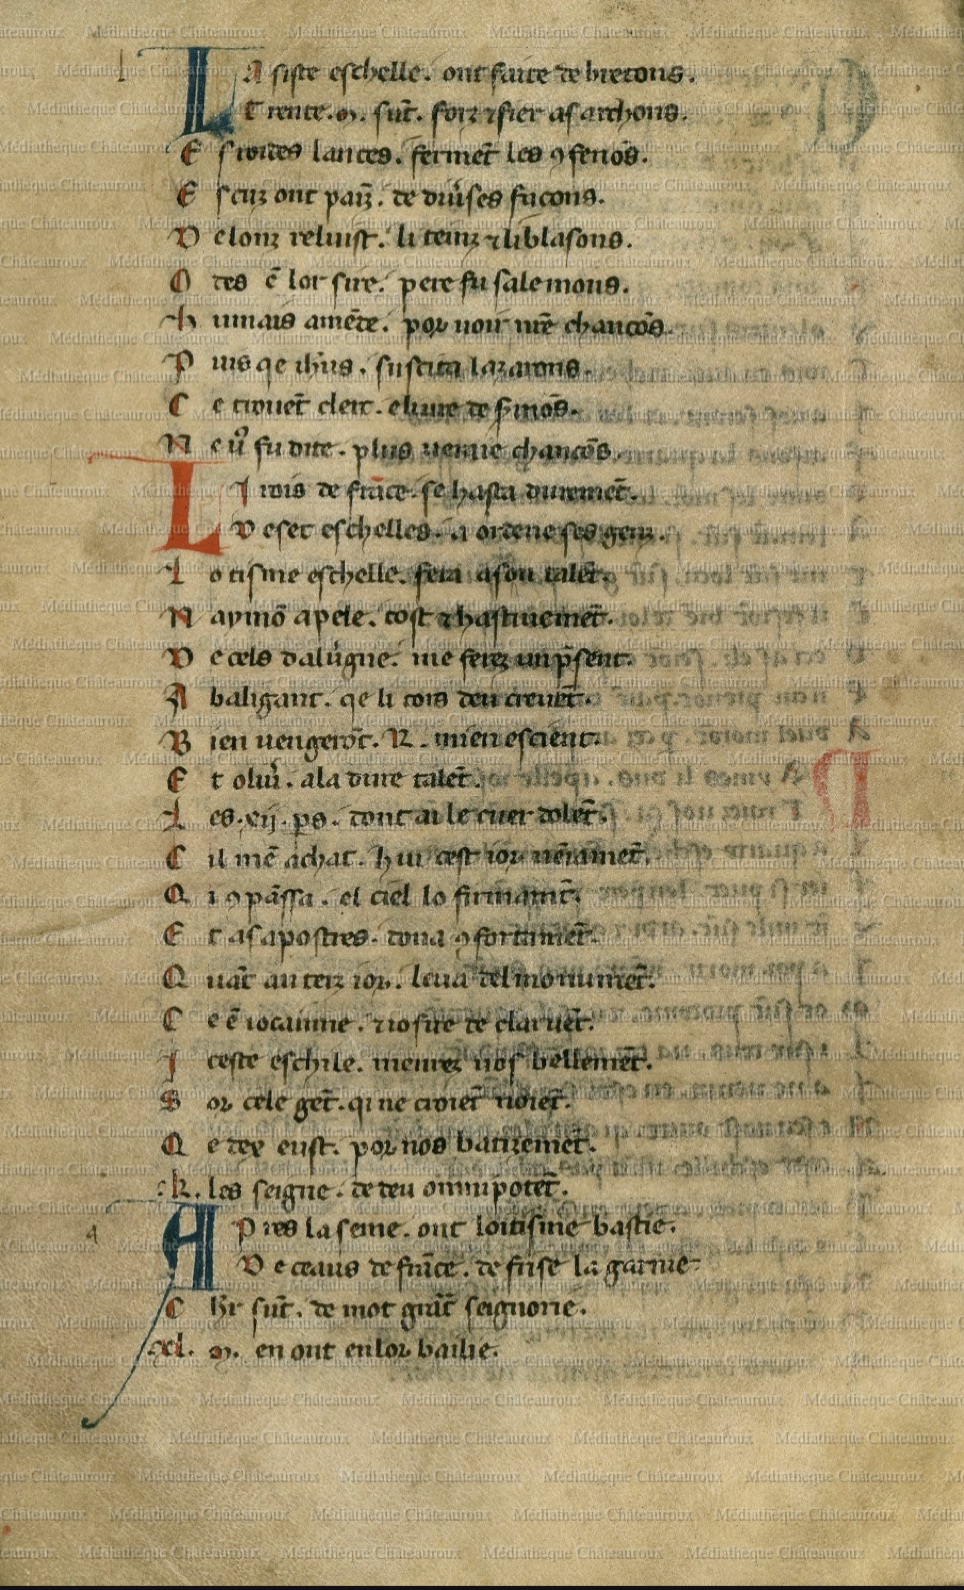 LA siste eschelle. ont faite de bretons.
Trente. M. sūt. forz ⁊ fier as archons.
E scuz ont painz. de diuses facons.
D e lonz reluist. li teinz ⁊ li blasons.
O des ē lor sire. pere fu salemons.
h uimais amēde. por uoir nr̄e chancōs.
P uis qe ih̄us. suscita lazarons.
C e trouet clerc. el liure de s̄mōs.
N e fu dite. plus ueraie chancōs.
LI rois de frāce. se hasta duremēt.
D e set eschelles. a ordene ses genz.
L oitisme eschelle. fera a son talēt.
N aymō apele. tost ⁊ hastiuemēt.
D e cels daluigne. me ferez un p̄sent.
A baligant. qe li rois deu creuēt.
B ien uengerōt. R. mien escient.
E t oliu. a la dure talēt.
L es .xij. ps. dont ai le cuer dolēt.
C il mē achat. hui cest ior ueraimēt.
Q i ꝯpassa. el ciel lo firmamt.
E t as apostres. dona ꝯfortimēt.
Q uāt au terz ior. leua del monumēt.
C e ē iocaimne. ⁊ iosire de claruēt.
I ceste eschile. menrez uos bellemēt.
S or cele gēt. qi ne croiēt noiēt.
Q e dex eust. por nos batizemēt.
.K. les seigne. de deu omnipotēt.
AP res la seme. ont loitisme bastie.
D e ceaus de frāce. de frise la garnie
C hr sūt. de mot grāt seignorie.
.xl. M. en ont en lor bailie.
Médiathèque Châteauroux